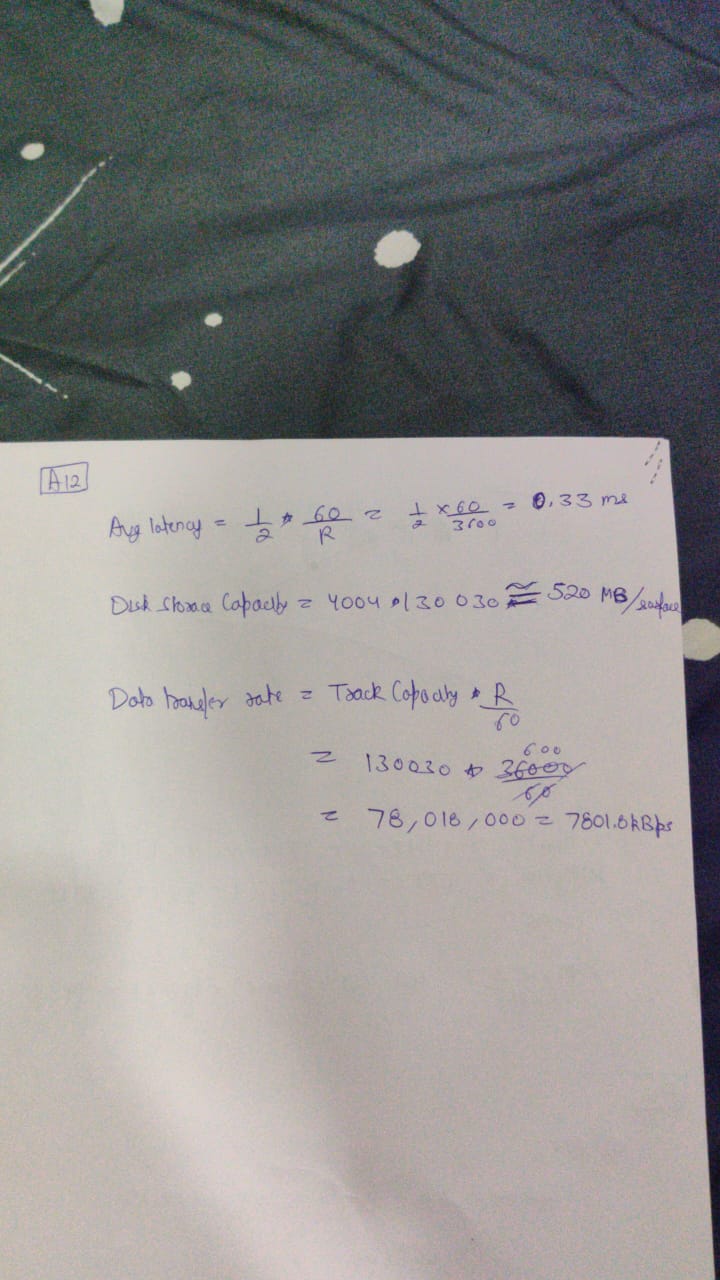 A12
Avg latency = 1/2 * 60/R = 1/2 × 60/3600 = 0.33 ms
Disk Storage Capacity = 4004 * 130 030 ≅ 520 MB/surface
Data transfer rate = Track Capacity * R/60
= 130030 * 36000/60 600
= 78,018,000 = 7801.8kBps